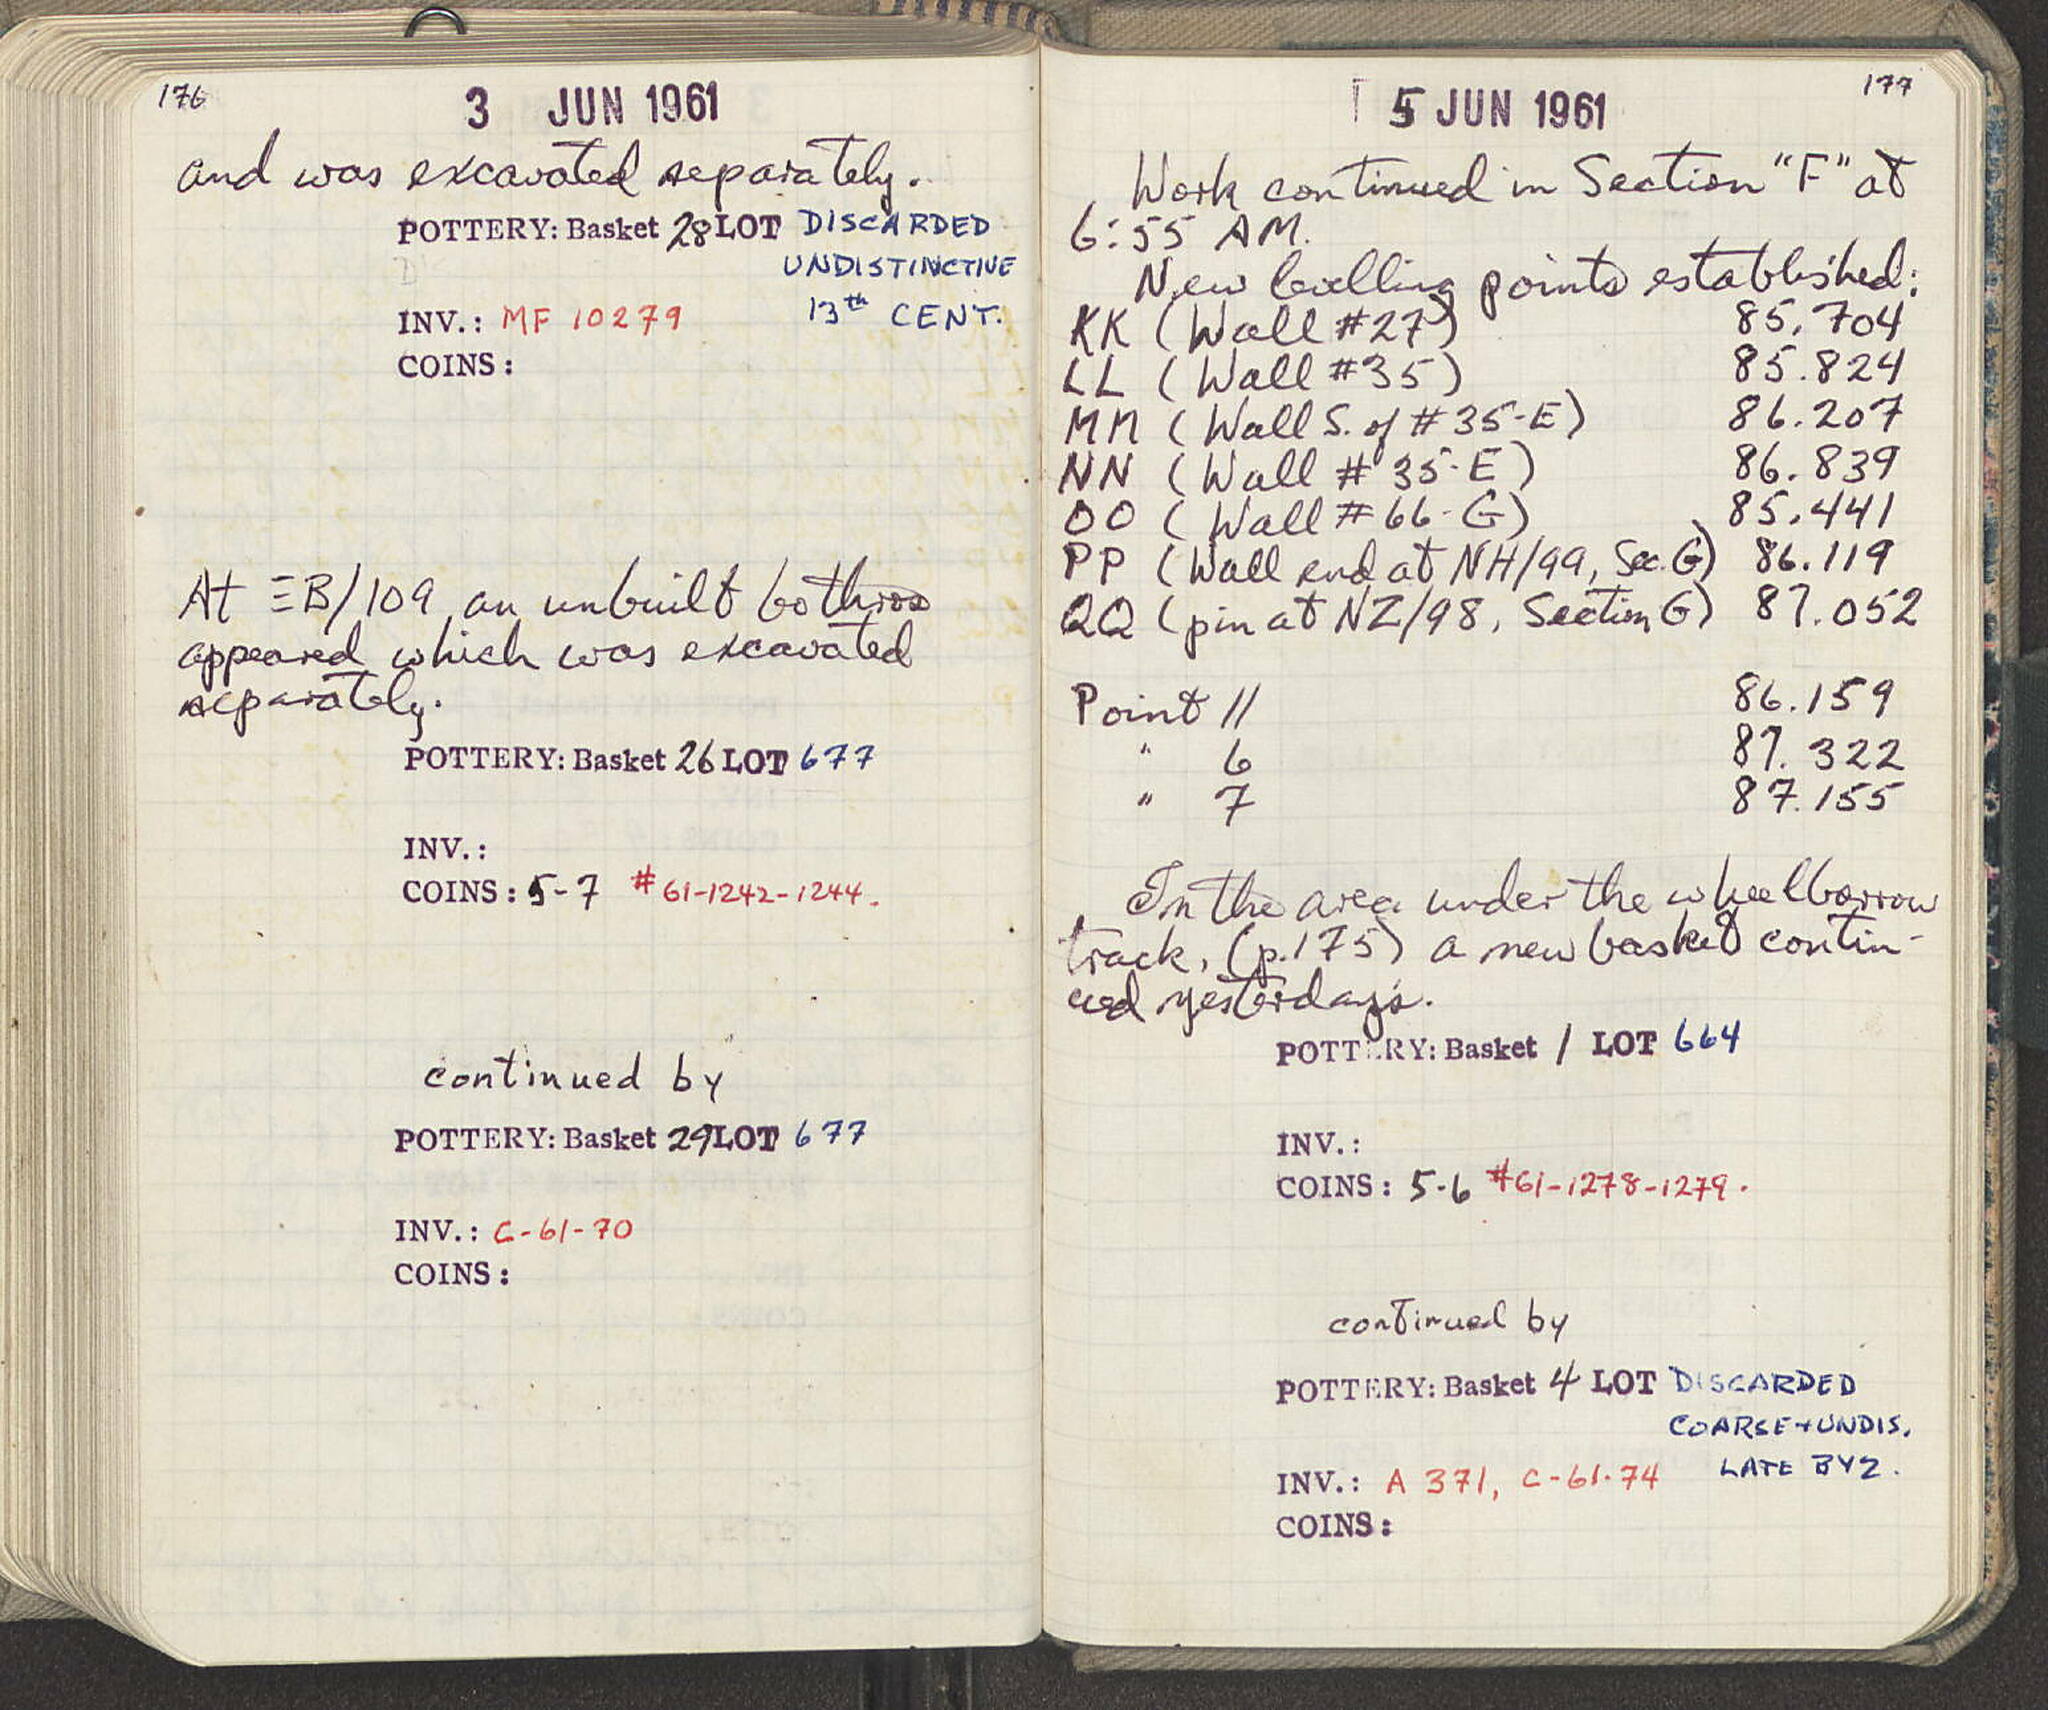 176
3 JUN 1961
and was excavated separately.
POTTERY: Basket 28 LOT DISCARDED
UNDISTINCTIVE
13th CENT.
INV.: MF 10279
COINS:
At ΞB/109 an unbuilt bothros
appeared which was excavated
separately.
POTTERY: Basket 26 LOT 677
INV.:
COINS: 5-7 #61-1242-1244.
continued by
POTTERY: Basket 29 LOT 677
INV.: C-61-70
COINS:
177
5 JUN 1961
Work continued in Section "F" at
6:55 AM.
New levelling points established:
KK (Wall #27) 85.704
LL (Wall #35) 85.824
MM (Wall S. of #35-E) 86.207
NN (Wall #35-E) 86.839
OO (Wall #66-G) 85.441
PP (Wall end at NH/99, Sec. G) 86.119
QQ (pin at NZ/98, Section G) 87.052
Point 11 86.159
" 6 87.322
" 7 87.155
In the area under the wheelbarrow
track, (p.175) a new basket contin-
ued yesterday's.
POTTERY: Basket 1 LOT 664
INV.:
COINS: 5-6 #61-1278-1279.
continued by
POTTERY: Basket 4 LOT DISCARDED
COARSE + UNDIS.
LATE BYZ.
INV.: A 371, C-61-74
COINS: